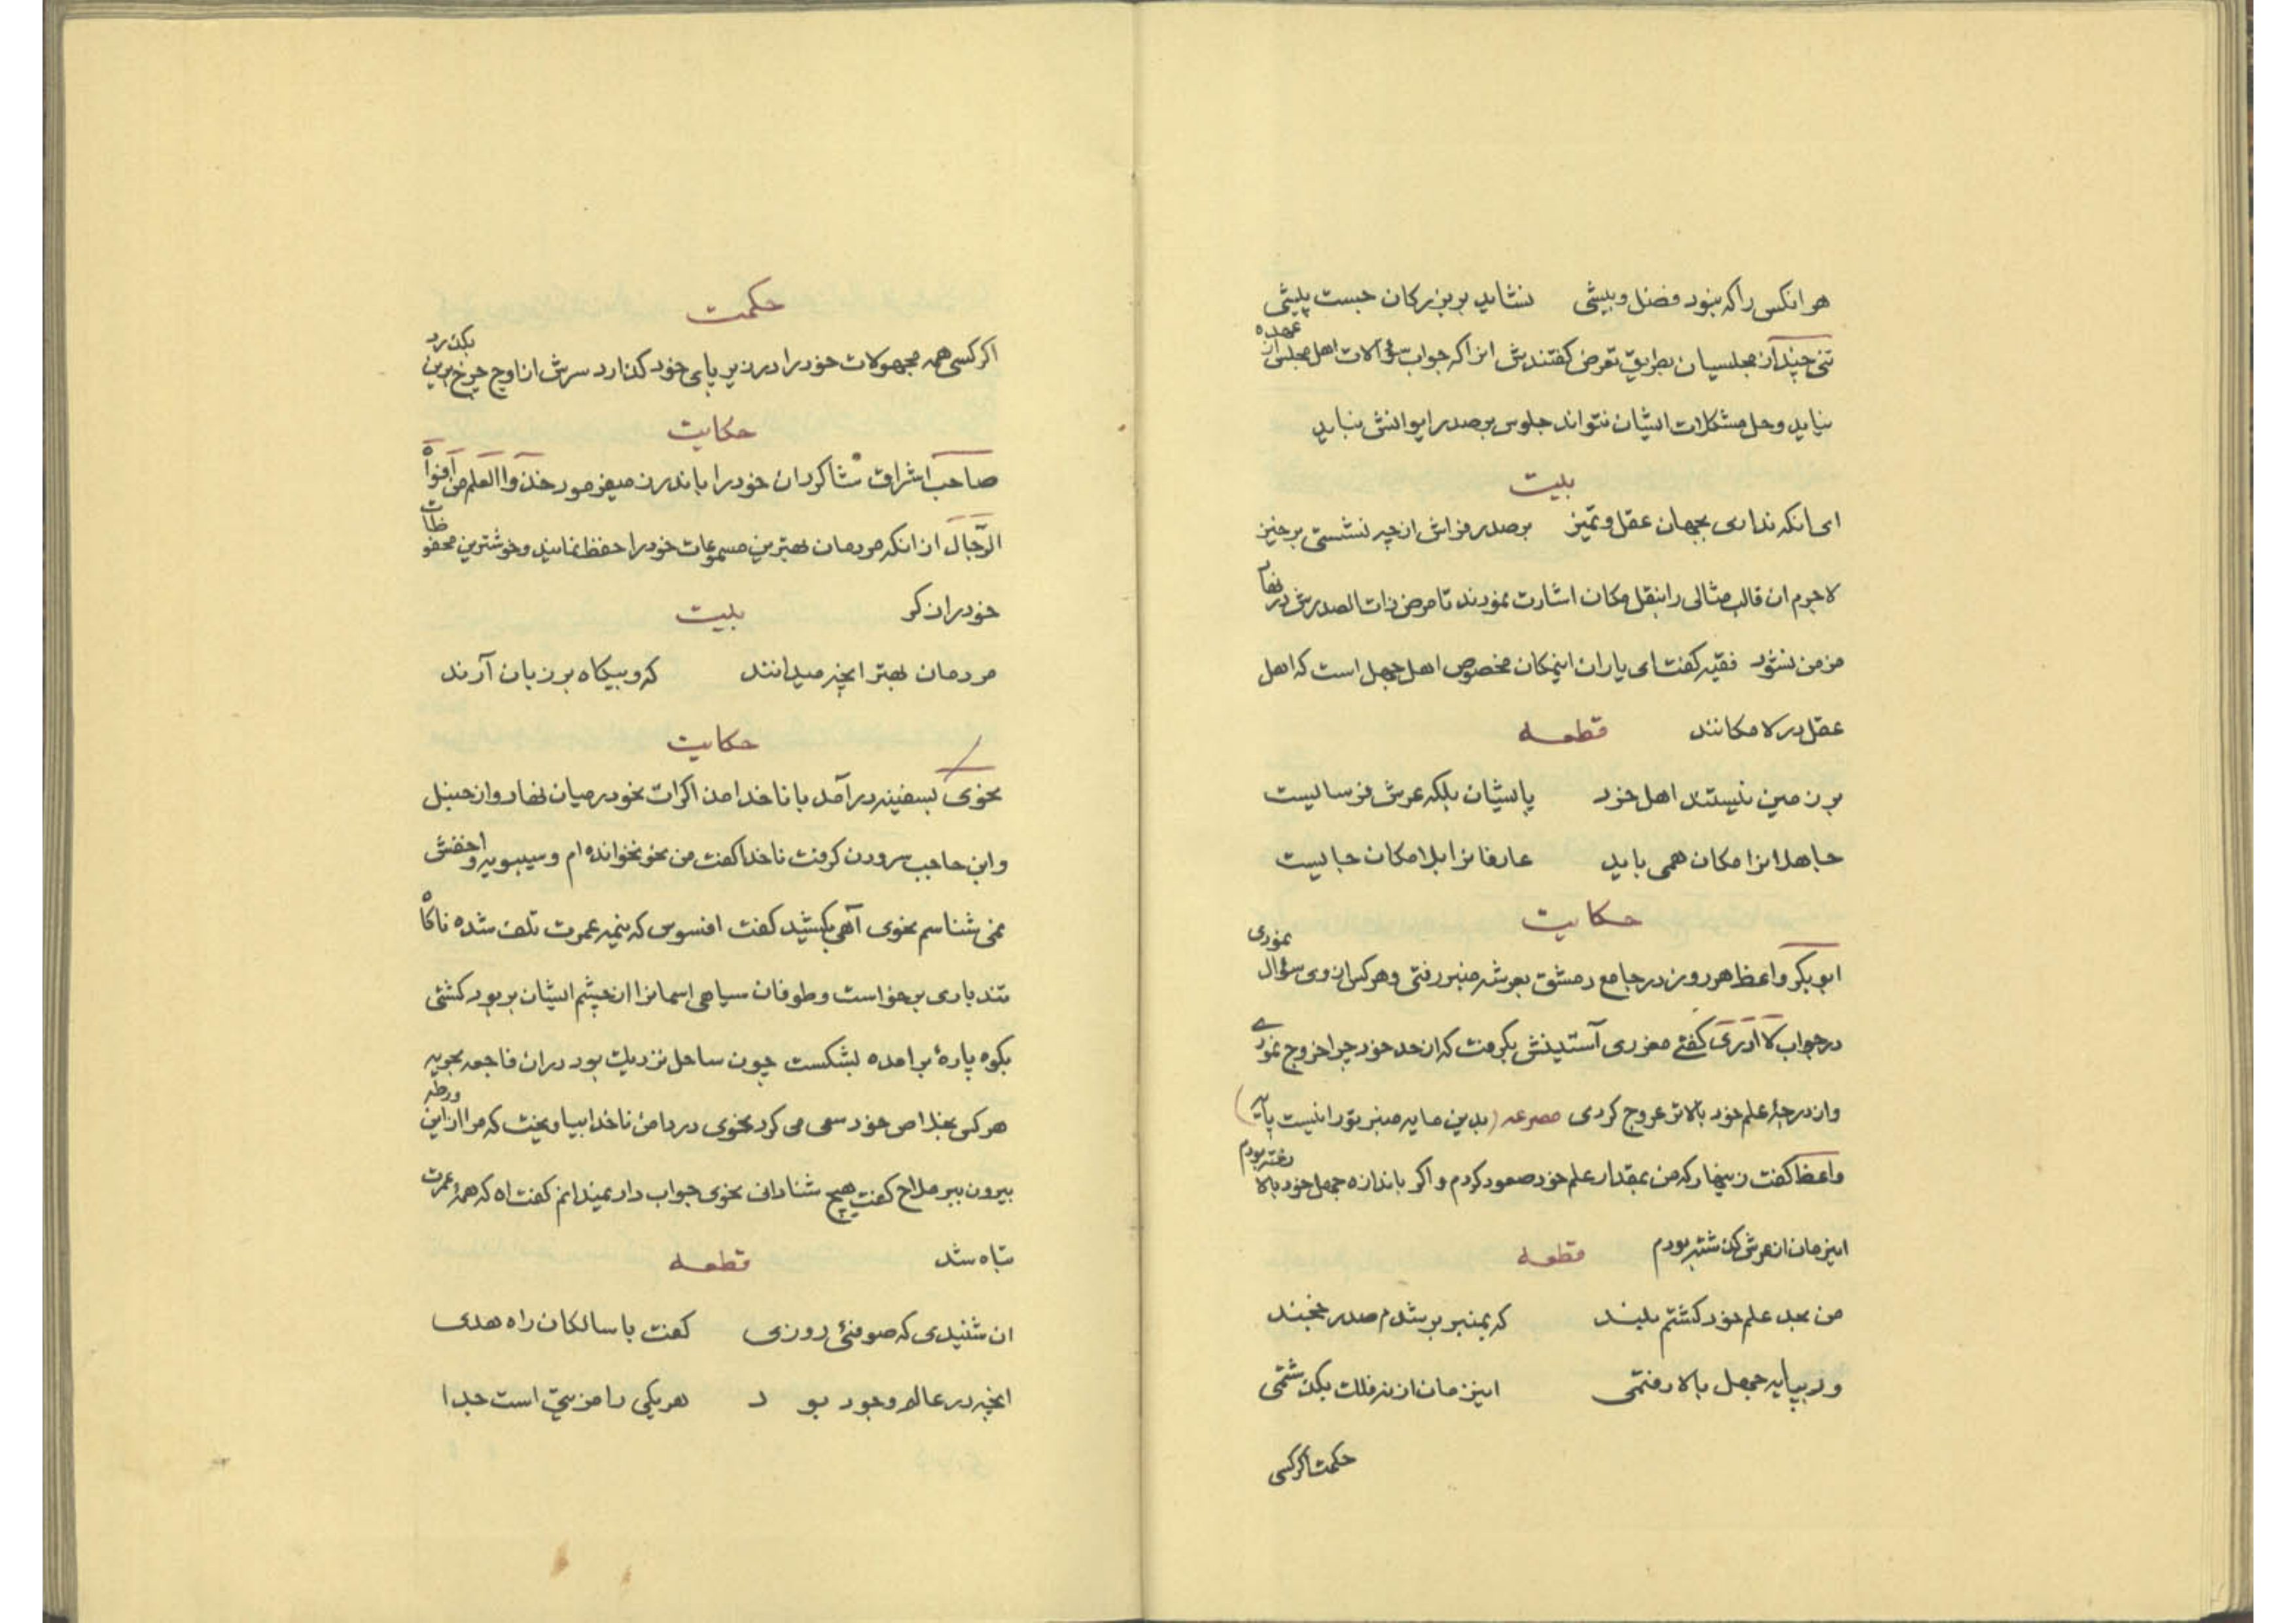 هر انکس را که نبود فضل و بیشی نشاید بر بزرکان جست پیشی
تنی چند از مجلسیان بطریق تعرض کفتندش انرا که جواب سؤالات اهل مجلس از عهده
نیاید و حل مشکلات ایشان نتواند جلوس بر صدر ایوانش نباید
بیت
ای انکه نداری بجهان عقل و تمیز بر صدر فراش از چه نشستی برخیز
لاجرم ان قالب مثالی را بنقل مکان اشارت نمودند تا مرض ذات الصدرش در نهاد
مزمن نشود فقیه کفت ای یاران اینمکان مخصوص اهل جهل است که اهل
عقل در لامکانند قطعه
بر زمین نیستند اهل خرد پایشان بلکه عرش فرسائیست
جاهلانرا مکان همی باید عارفانرا بلامکان جائیست
حکایت
ابو بکر واعظ هر روز در جامع دمشق بعرشه منبر رفتی و هر کس از وی سؤال نمودی
در جواب لا ادری کفتے مغروری آستینش بکرفت که از حد خود چرا خروج نمودے
و از درجهٔ علم خود بالاتر عروج کردی مصرعه (بدین مایه منبر تو را نیست پایه)
واعظ کفت زینهار که من بمقدار علم خود صعود کردم و اکر باندازه جهل خود بالا رفته بودم
اینزمان از عرش کذشته بودم قطعه
من بحد علم خود کشتم بلند که بمنبر بر شدم صدر نجند
ور بپایه جهل بالا رفتمی اینزمان از نه فلک بکذشتمی
حکمت اکر کسی
حکمت
اکر کسی همه مجهولات خود را در زیر پای خود کذارد سرش از اوج چرخ برین بکذرد
حکایت
صاحب اشراق شاکردان خود را باندرز میفرمود خذوا العلم من افواه
الرجال از انکه مردمان بهترین مسموعات خود را حفظ نمایند و خوشترین محفوظات
خود را ذکر بیت
مردمان بهتر انچه میدانند که و بیکاه بر زبان آرند
حکایت
نحوی بسفینه در آمد با ناخدا مذاکرات نحو در میان نهاد و از خلیل
و ابن حاجب سرودن کرفت ناخدا کفت من نحو نخوانده ام و سیبویه و اخفش
نمی شناسم نحوی آهی بکشید کفت افسوس که نیمه عمرت تلف شده ناکاه
تند بادی برخواست و طوفان سیاهی اسمانرا از چشم ایشان بربود کشتی
بکوه پارهٔ برامده بشکست چون ساحل نزدیک بود دران فاجعه بجویه
هر کس بخلاص خود سعی می کرد نحوی در دامن ناخدا بیاویخت که مرا از این ورطه
بیرون ببر ملاح کفت هیچ شنا دانی نحوی جواب داد نمیدانم کفت اه که همهٔ عمرت
تباه شد قطعه
ان شنیدی که صوفئی روزی کفت با سالکان راه هدی
انچه در عالم وجود بو د هر یکی را مزیتی است جدا